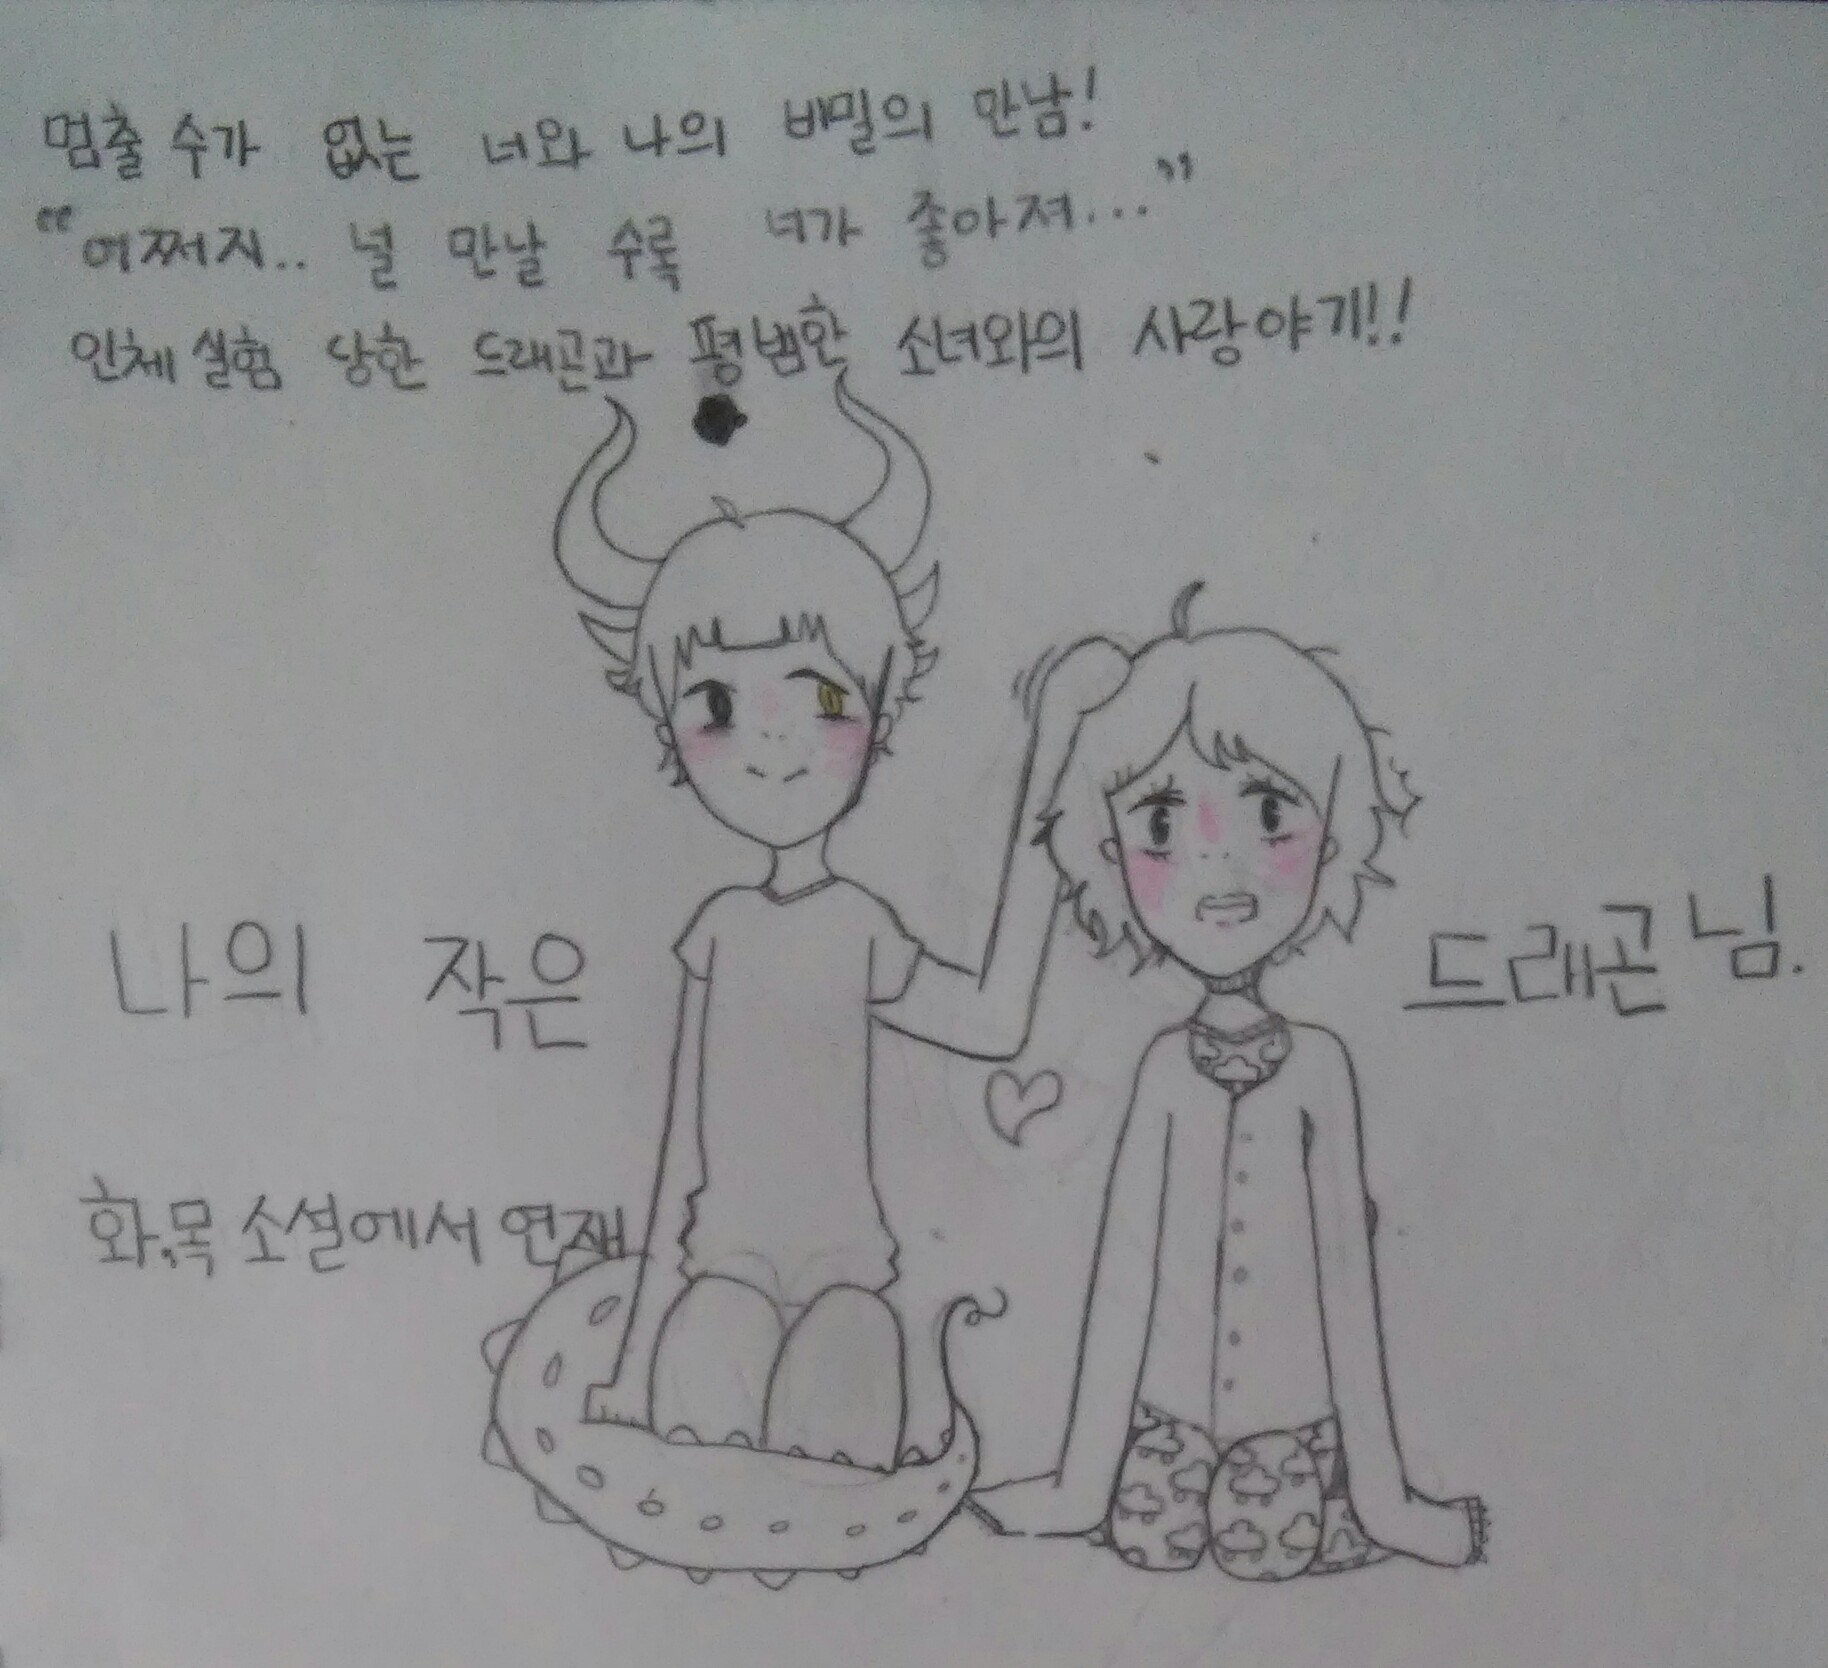 멈출 수가 없는 너와 나의 비밀의 만남!
"어쩌지.. 널 만날 수록 너가 좋아져..."
인체실험 당한 드래곤과 평범한 소녀와의 사랑야기!!
나의 작은 드래곤님.
화,목 소설에서 연재